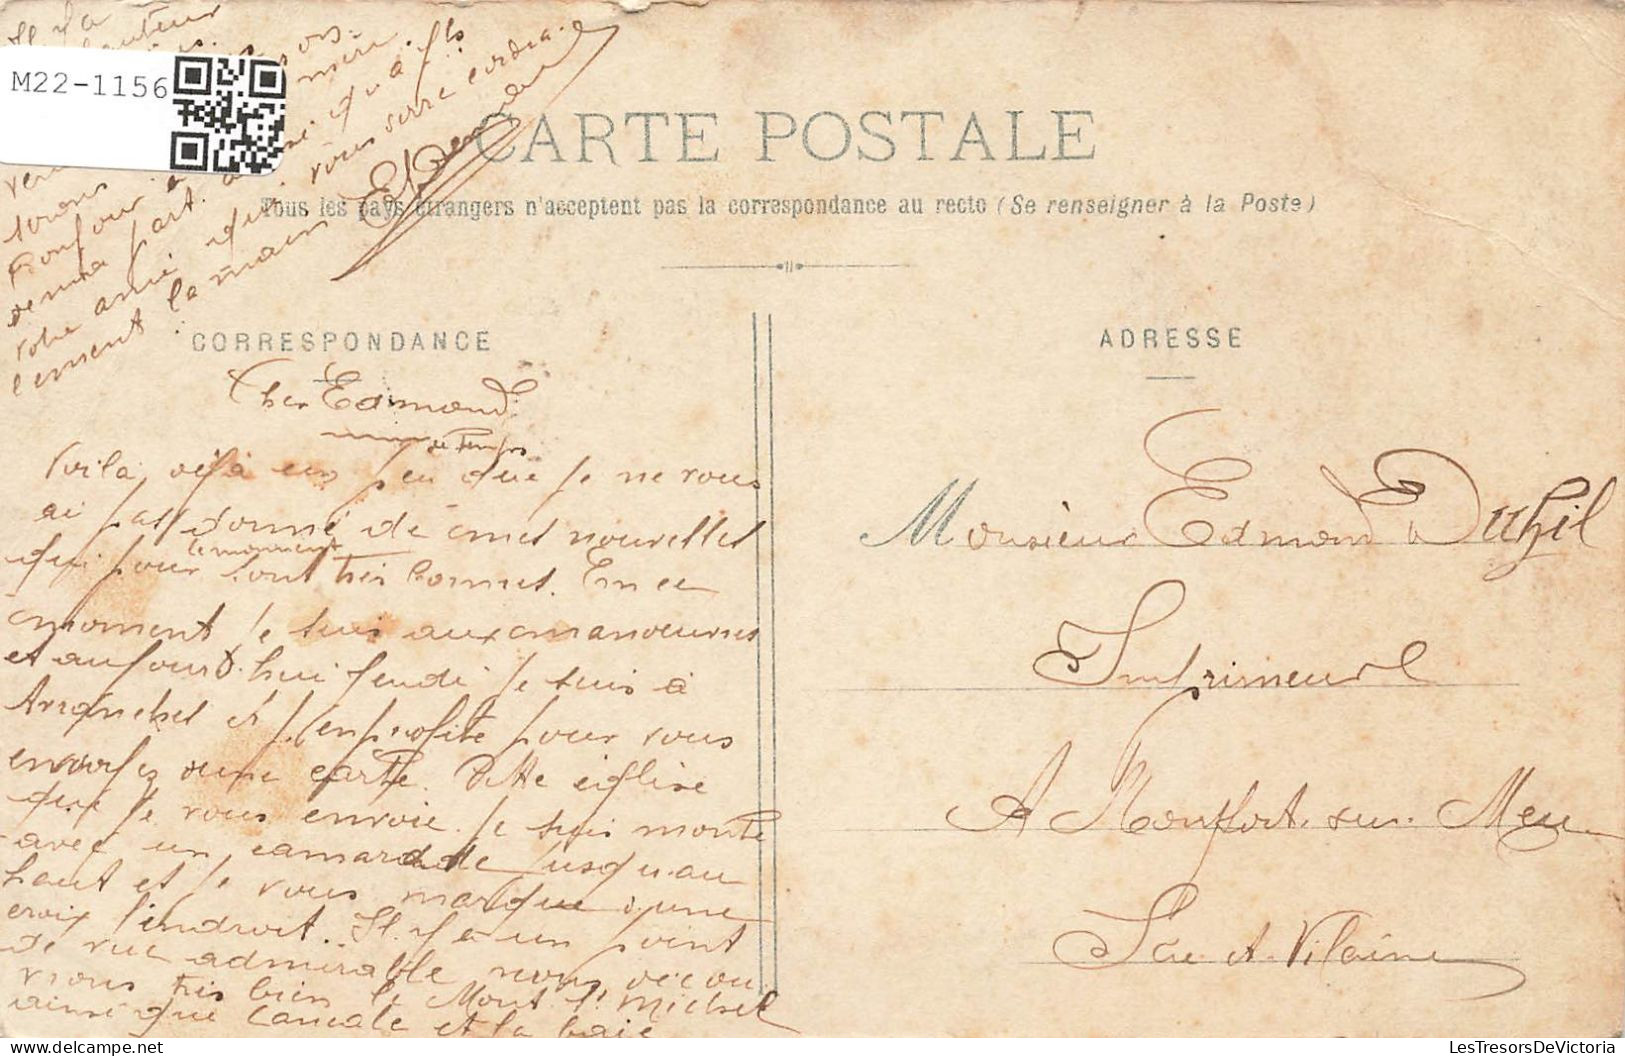 M22-1156
CARTE POSTALE
Tous les pays étrangers n'acceptent pas la correspondance au recto (Se renseigner à la Poste)
CORRESPONDANCE
ADRESSE
Cher Edmond
de temps
Voilà déjà un peu que je ne vous
ai pas donné de mes nouvelles
le moment
qui pour sont très bonnes. En ce
moment je suis aux manoeuvres
et aujourd'hui jeudi je suis à
et j'en profite pour vous
envoyez une carte. Cette église
que je vous envoie je suis monté
avec un camarade jusqu'au
haut et je vous marque d'une
croix l'endroit. Il y a un point
de vue admirable nous décou
vrons très bien le Mont St Michel
ainsi que Cancale et la baie
Il y a
hauteur
mère.
Bonjour
de ma part ainsi qu'à
votre ami qui vous serre cordia
lement la main
Monsieur Edmond Duhil
Imprimeur
A Monfort-sur-Meu
Ile et Vilaine
LesTresorsDeVictoria.com